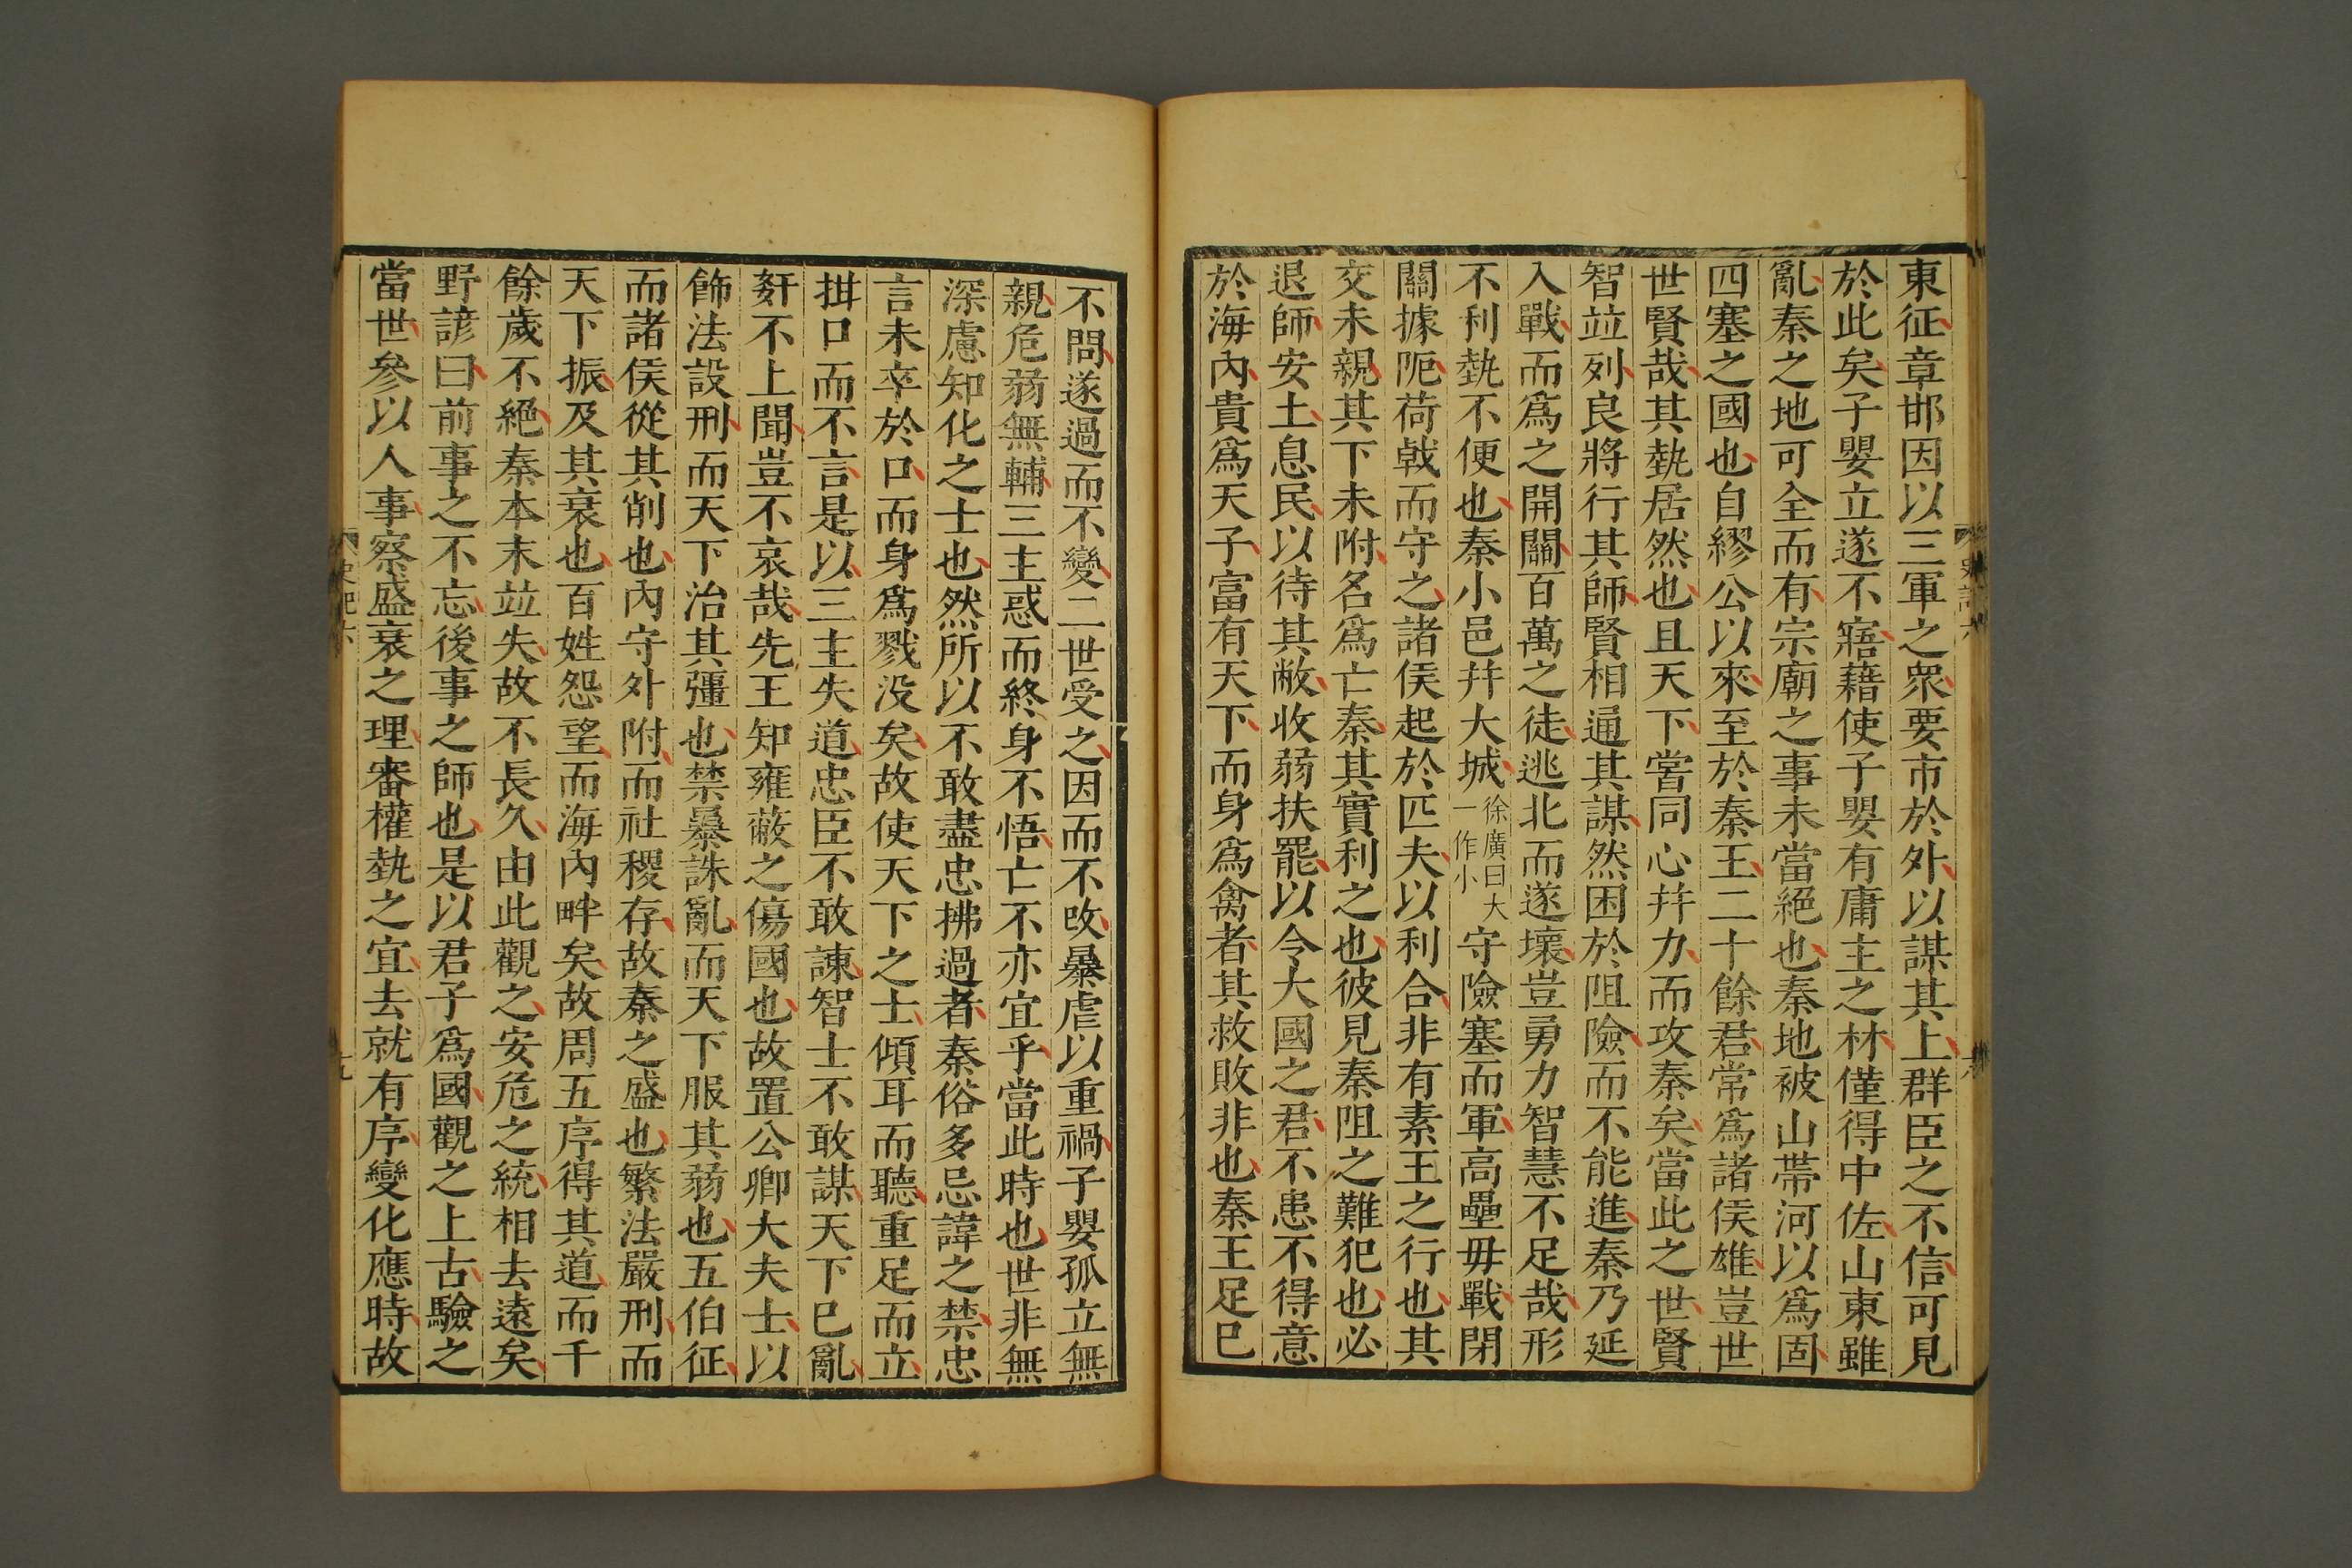 東征章邯因以三軍之衆要市於外以謀其上群臣之不信可見
於此矣子嬰立遂不寤藉使子嬰有庸主之材僅得中佐山東雖
亂秦之地可全而有宗廟之事未當絕也秦地被山帶河以爲固
四塞之國也自繆公以來至於秦王二十餘君常爲諸侯雄豈世
世賢哉其埶居然也且天下嘗同心幷力而攻秦矣當此之世賢
智竝列良將行其師賢相通其謀然困於阻險而不能進秦乃延
入戰而爲之開關百萬之徒逃北而遂壞豈勇力智慧不足哉形
不利埶不便也秦小邑幷大城徐廣曰大一作小守險塞而軍高壘毋戰閉
關據阨荷戟而守之諸侯起於匹夫以利合非有素王之行也其
交未親其下未附名爲亡秦其實利之也彼見秦阻之難犯也必
退師安土息民以待其敝收弱扶罷以令大國之君不患不得意
於海內貴爲天子富有天下而身爲禽者其救敗非也秦王足已
不問遂過而不變二世受之因而不改暴虐以重禍子嬰孤立無
親危弱無輔三主惑而終身不悟亡不亦宜乎當此時也世非無
深慮知化之士也然所以不敢盡忠拂過者秦俗多忌諱之禁忠
言未卒於口而身爲戮没矣故使天下之士傾耳而聽重足而立
拑口而不言是以三主失道忠臣不敢諫智士不敢謀天下已亂
姧不上聞豈不哀哉先王知雍蔽之傷國也故置公卿大夫士以
飾法設刑而天下治其彊也禁暴誅亂而天下服其弱也五伯征
而諸侯從其削也內守外附而社稷存故秦之盛也繁法嚴刑而
天下振及其衰也百姓怨望而海內畔矣故周五序得其道而千
餘歲不絕秦本末竝失故不長久由此觀之安危之統相去遠矣
野諺曰前事之不忘後事之師也是以君子爲國觀之上古驗之
當世參以人事察盛衰之理審權埶之宜去就有序變化應時故